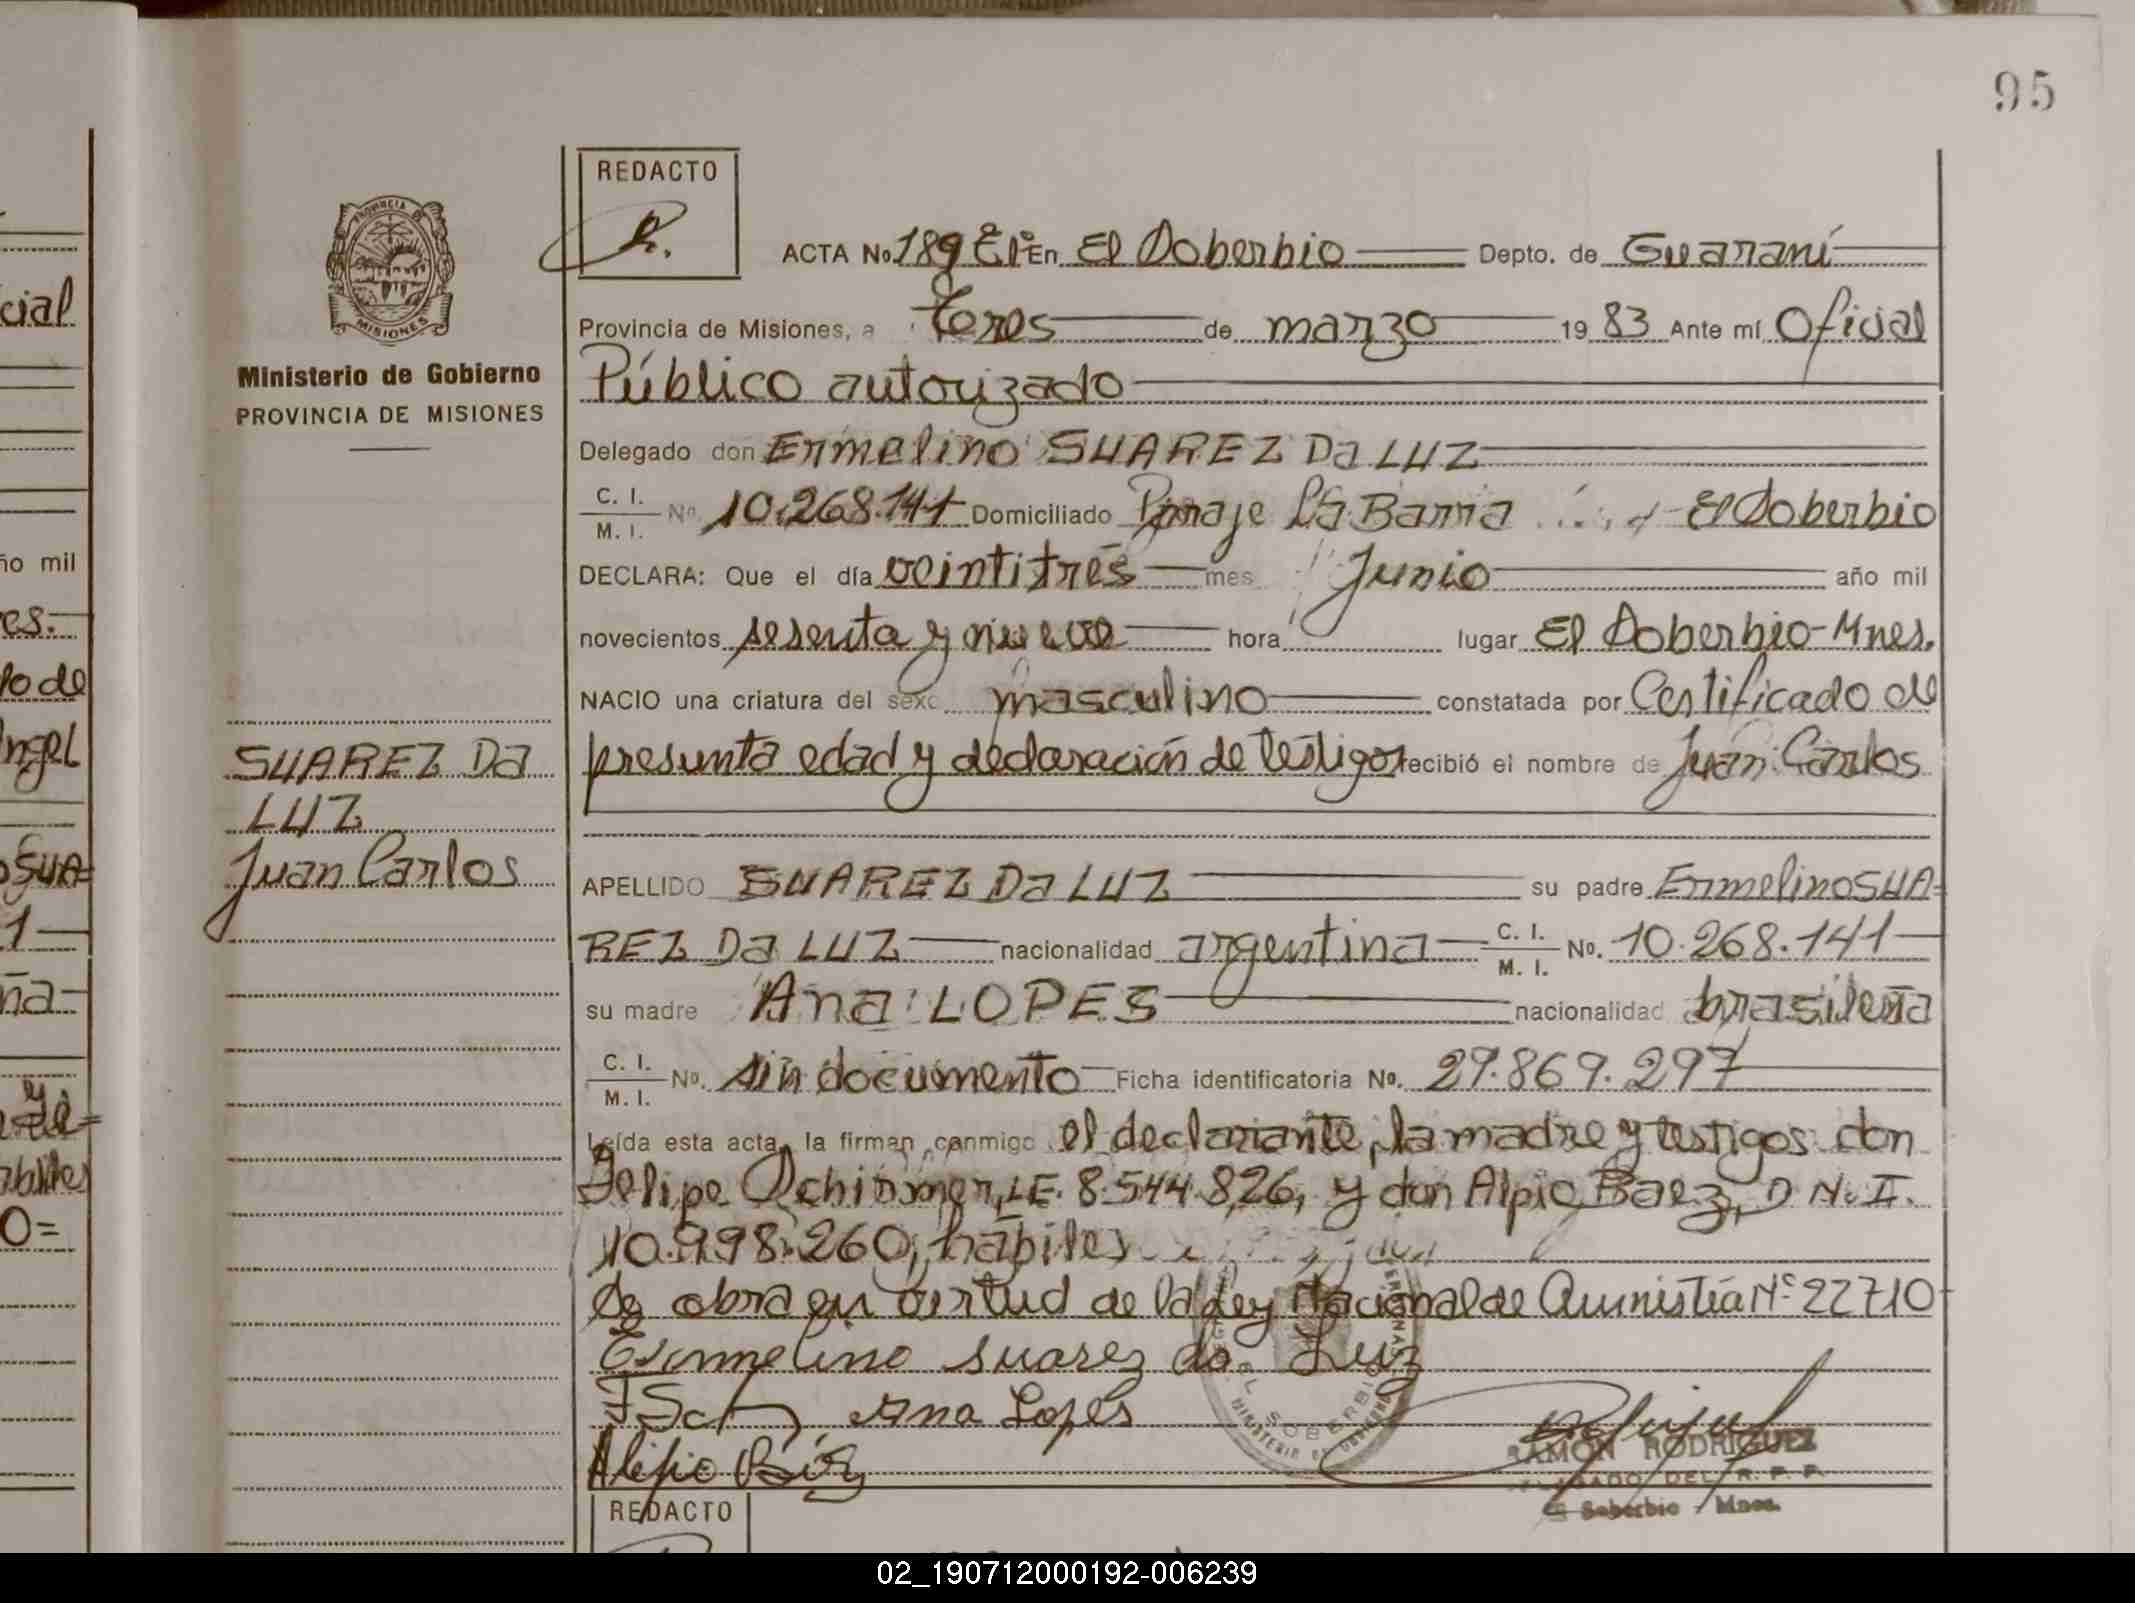 95
REDACTO
ACTA No 189 En El Soberbio Depto. de Guaraní
PROVINCIA DE
MISIONES
Provincia de Misiones, a tres de marzo 19 83 Ante mí Oficial
Ministerio de Gobierno
PROVINCIA DE MISIONES
Público autorizado
Delegado don Ermelino SUAREZ Da LUZ
C. I.
M. I.
No. 10.268.141 Domiciliado Paraje La Barra El Soberbio
DECLARA: Que el día veintitrés mes Junio año mil
novecientos sesenta y nueve hora lugar El Soberbio-Mnes.
NACIO una criatura del sexo masculino constatada por Certificado de
presunta edad y declaración de testigos recibió el nombre de Juan Carlos
SUAREZ Da
LUZ
Juan Carlos
APELLIDO SUAREZ Da LUZ su padre Ermelino SUA=
REZ Da LUZ nacionalidad argentina C. I. M. I. No. 10.268.141
su madre Ana LOPES nacionalidad brasileña
C. I.
M. I.
No. sin documento Ficha identificatoria No. 29.869.297
Leída esta acta, la firman conmigo el declarante, la madre y testigos don
Felipe L.E. 8.544.826, y don Alpio Baez, D.N.I.
10.998.260, hábiles
Se obra en virtud de la Ley Nacional de Amnistía Nº 22710
Ermelino Suarez da Luz
Ana Lopes
Alipio Báez
EL SOBERBIO
MINISTERIO DE GOBIERNO
RAMON RODRIGUEZ
DEL R. P. P.
El Soberbio - Mnes.
REDACTO
cial
ño mil
es.
lo de
ngel
SUA=
1
ña
0=
02_190712000192-006239